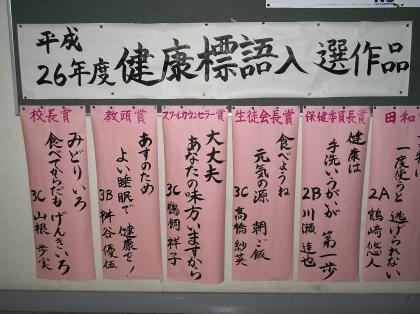 平成
26年度健康標語入選作品
校長賞
みどりいろ
食べてからだもげんきいろ
3C 山根 歩実
教頭賞
あすのため
よい睡眠で 健康を！
3B 桝谷 優伍
スクールカウンセラー賞
大丈夫
あなたの味方いますから
3C 鵜飼 祥子
生徒会長賞
食べようね
元気の源 朝ご飯
3C 高橋 紗英
保健委員長賞
健康は
手洗いうがいが 第一歩
2B 川瀬 達也
田和
一度使うと 逃げられない
2A 鶴崎 悠人